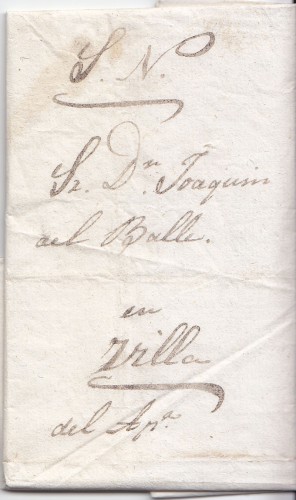 S. N.
Sr. Dn. Joaquin
del Balle.
en
Zilla
del Apº